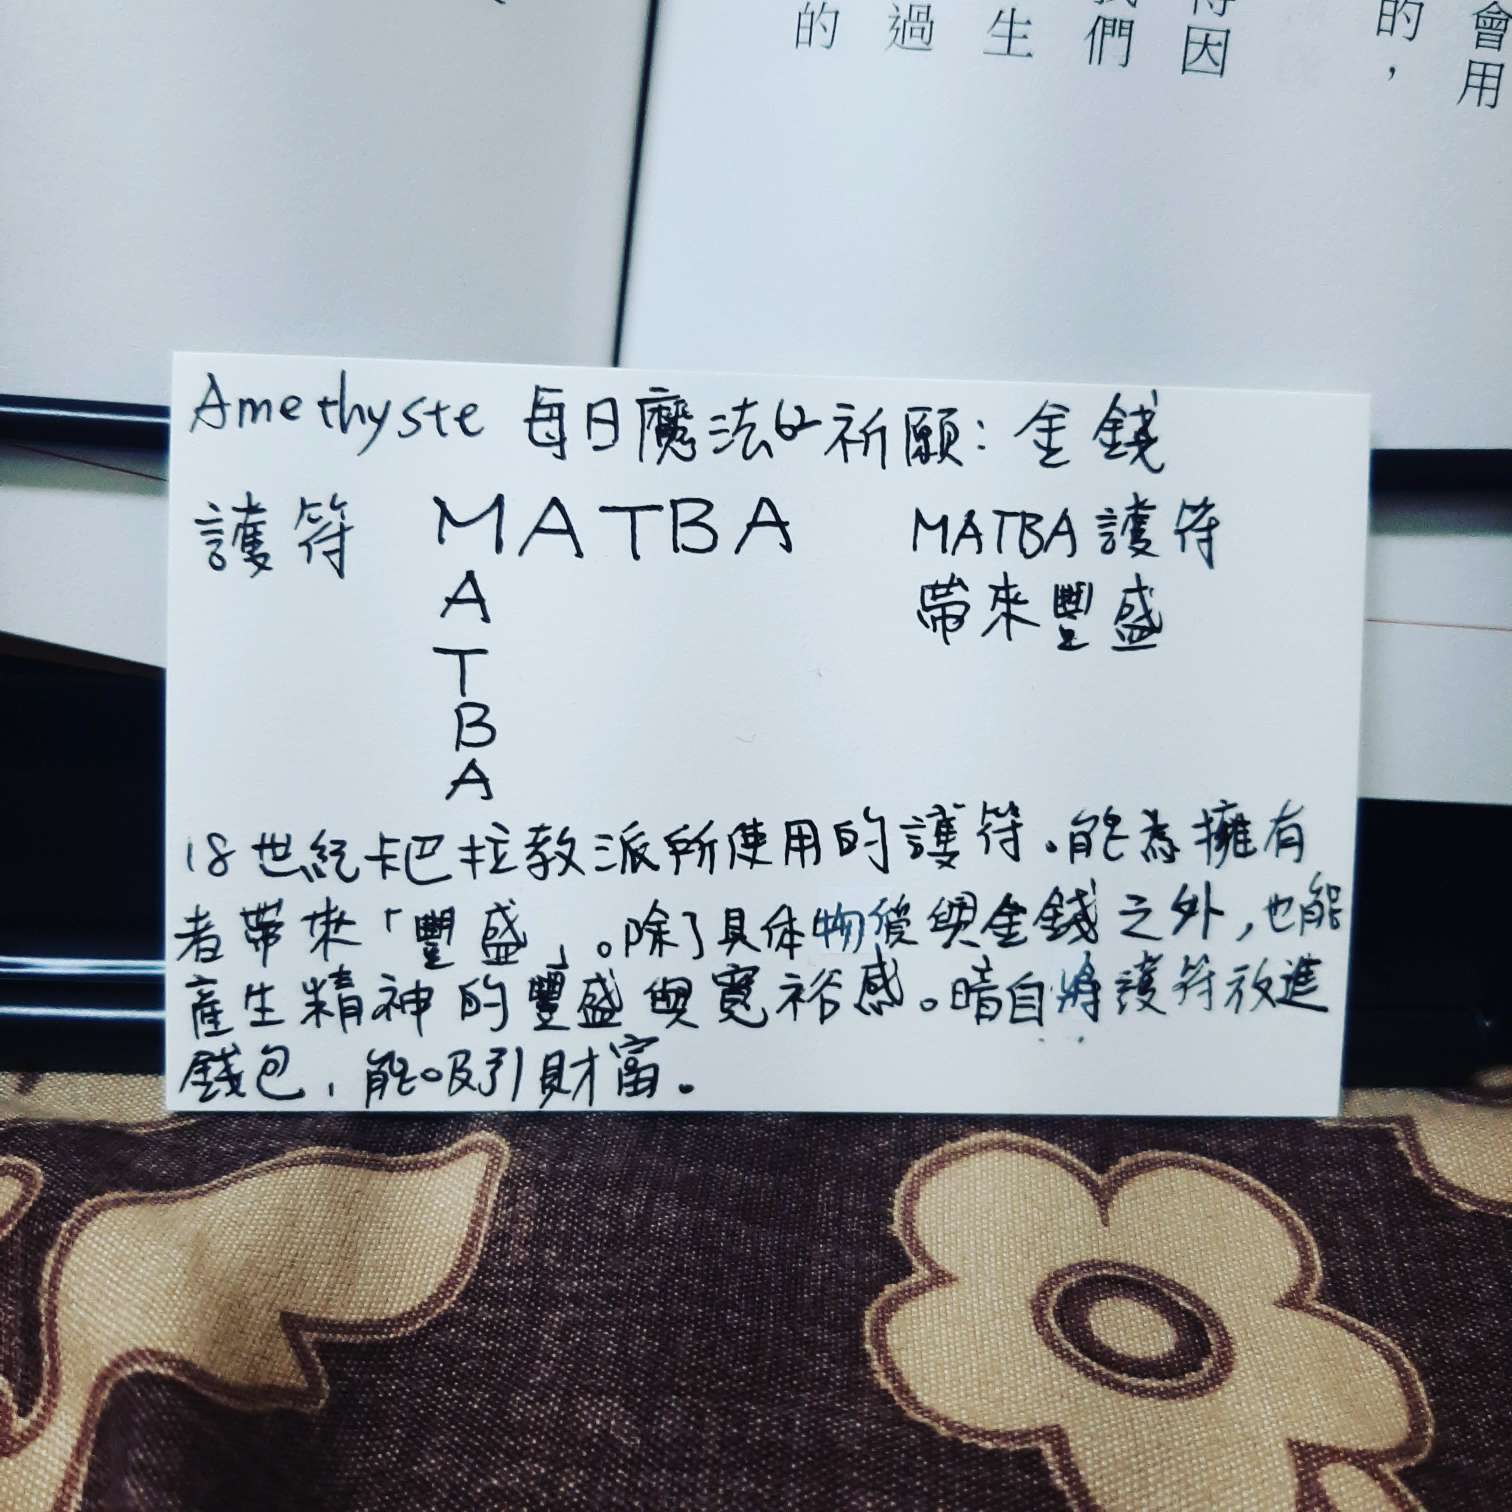 會用
的，
得因
我們
生
過
的
Amethyste 每日魔法的祈願：金錢
護符 MATBA MATBA護符
A 帶來豐盛
T
B
A
18世紀卡巴拉教派所使用的護符.能為擁有
者帶來「豐盛」。除了具体物質與金錢之外,也能
產生精神的豐盛與寬裕感。暗自將護符放進
錢包,能吸引財富.